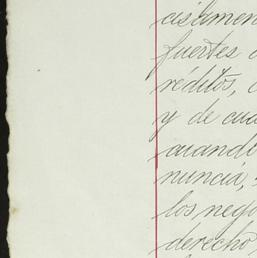 cislamen
fuertes
réditos,
y de cua
cuando
nuncia,
los nego
derecho,